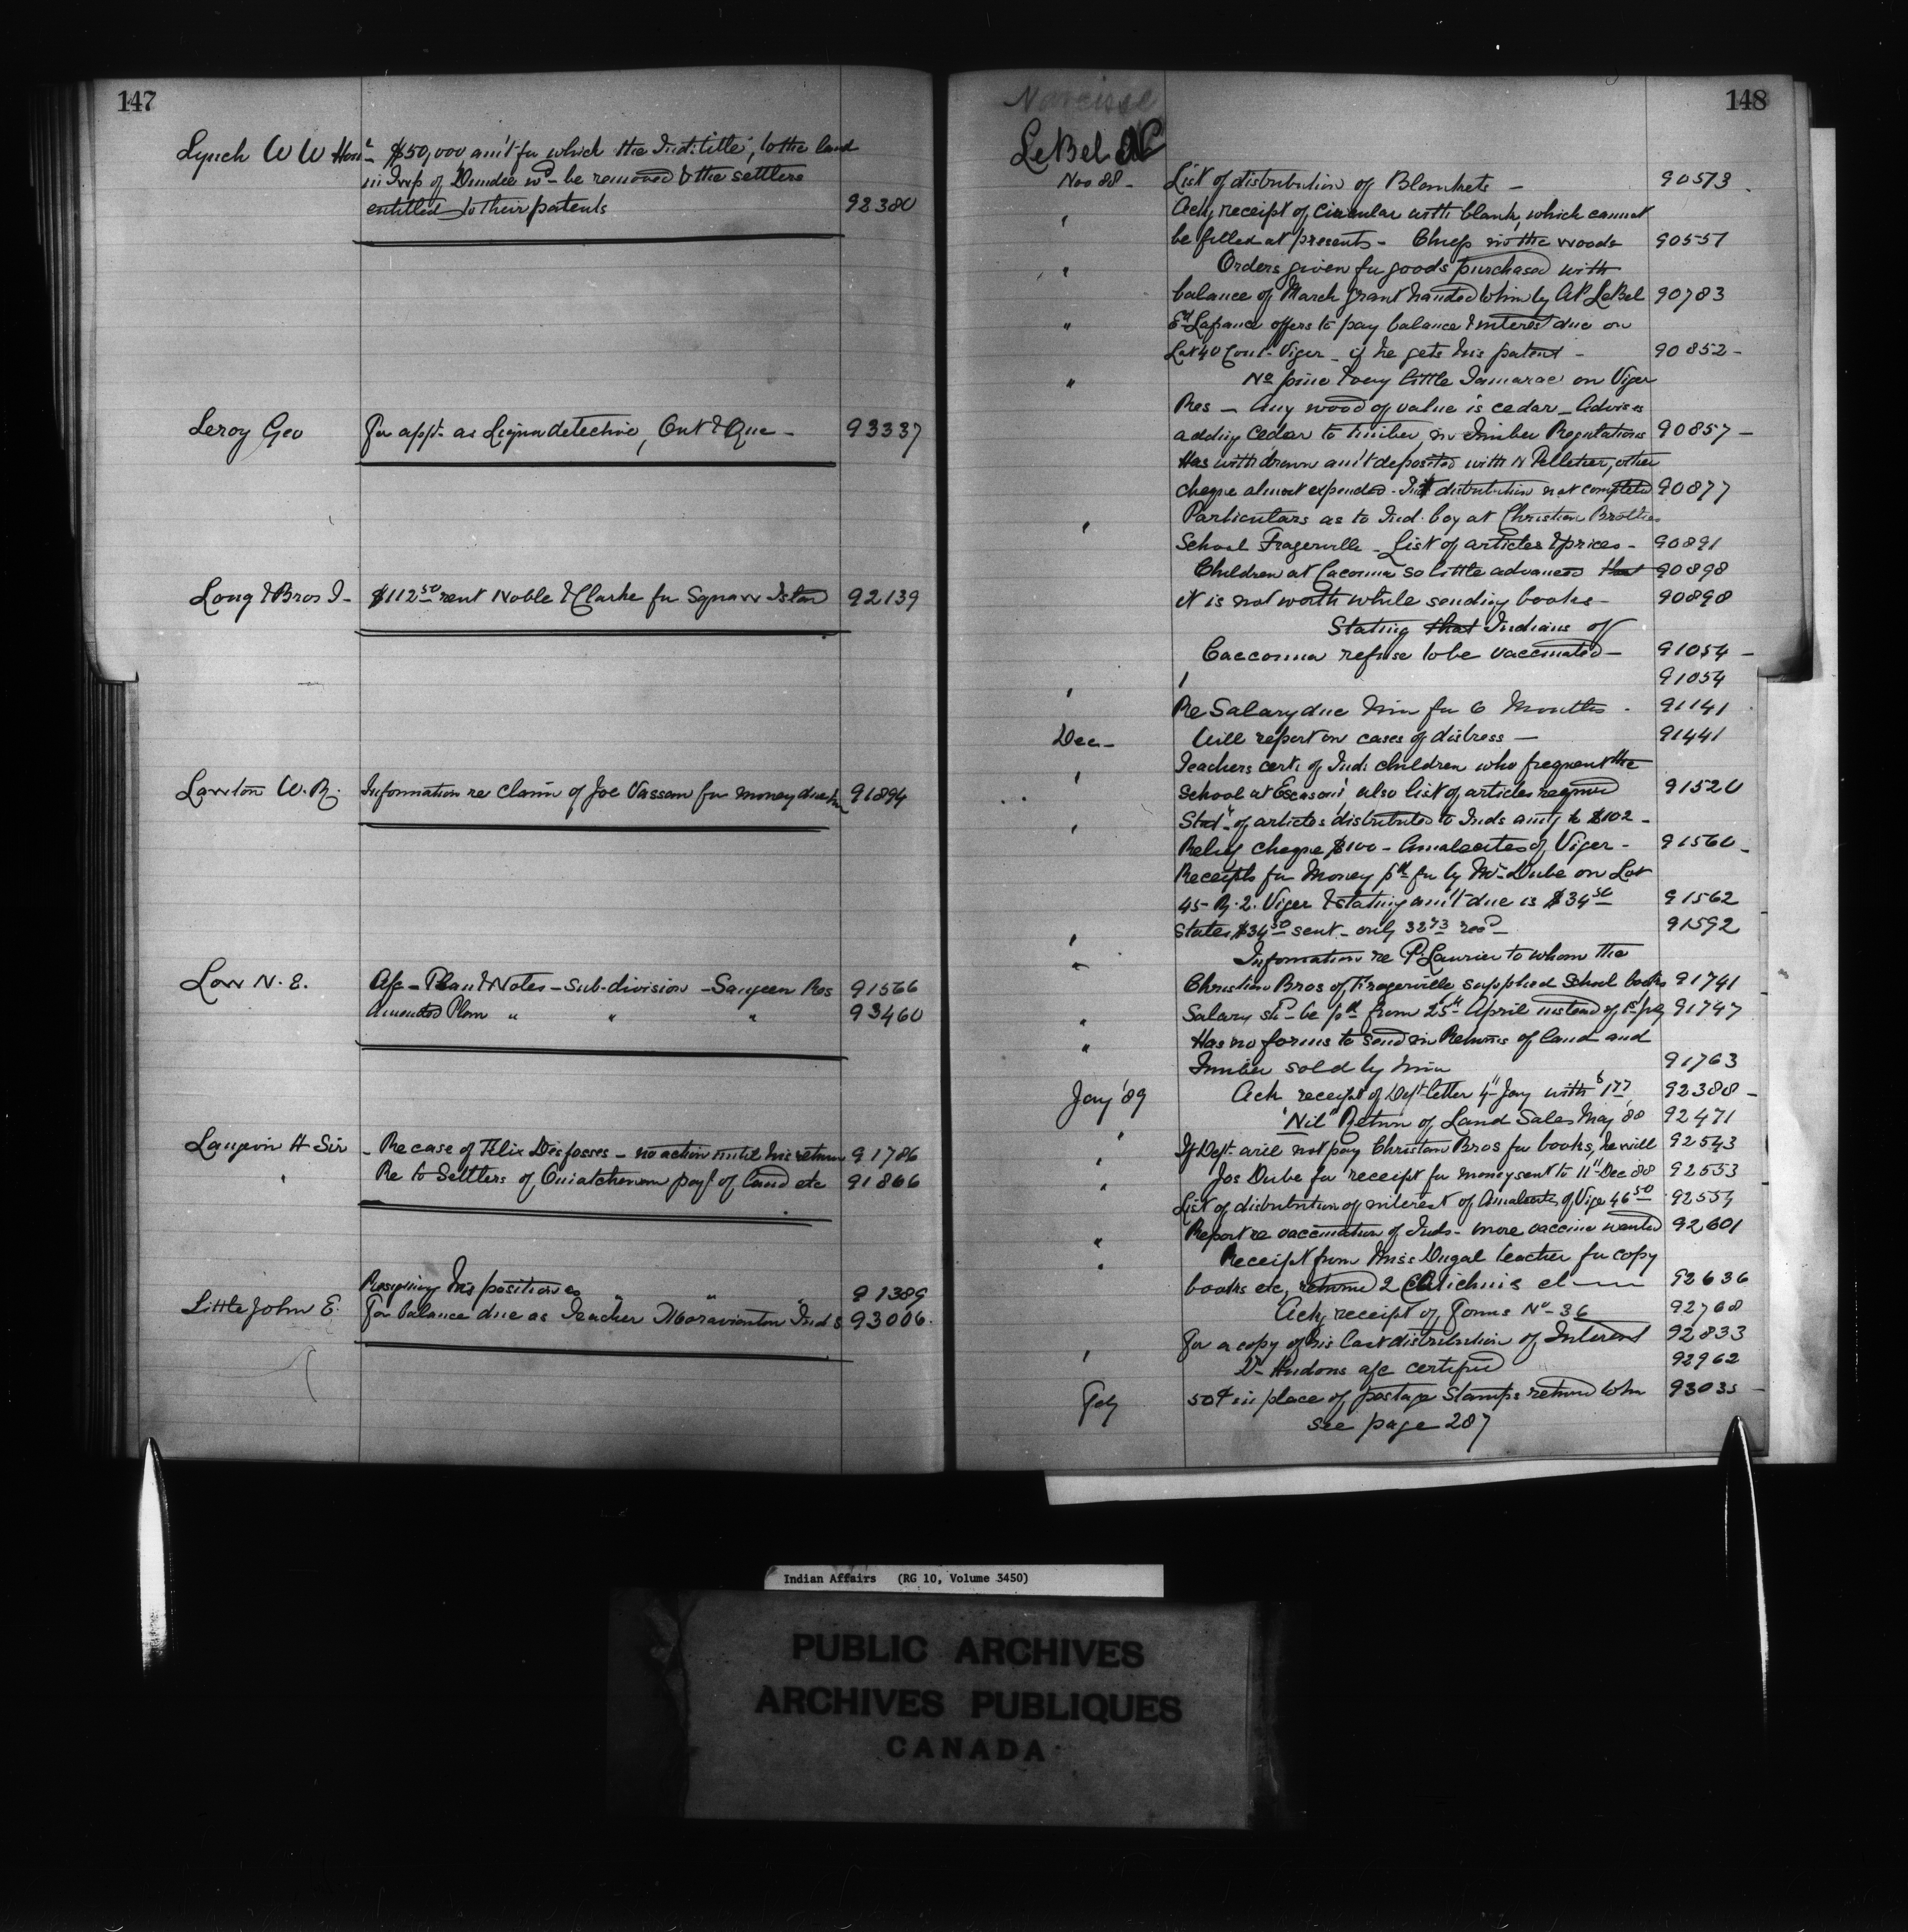 147
Lynch W W Hon - $50,000 am't for which the Ind. title, to the land
in Twp of Dundee wd be removed & the settlers
entitled to their patents 92380
Leroy Geo For appt. as Liquor detective, Ont & Que - 93337
Long & Bros J - $112.50 rent Noble & Clarke for Squaw Island 92139
Lawton W. R. Information re claim of Joe Vassan for money due him 91894
Low N. E. A/c - Plan & Notes - Sub-division - Saugeen Res 91566
Amended Plan " " " 93460
Langevin H Sir - Re case of Felix Desfosses - no action until his return 91786
" Re to Settlers of Ouiatchenan payt of land etc 91866
Resigning his position as " " " 91389
Little John E. For balance due as Teacher Moraviantown Inds 93006.
148
Narcisse
LeBel N
Nov 88 - List of distribution of Blankets - 90573
" Ack receipt of Circular with blank, which cannot
be filled at present - Chief in the woods 90557
" Orders given for goods purchased with
balance of March grant handed to him by A P LeBel 90783
" Ed Lafrance offers to pay balance & interest due on
Lot 40 Viger - if he gets his patent - 90852 -
" No pine & very little Tamarac on Viger
Res - Any wood of value is cedar - Advises
adding Cedar to timber, in Timber Regulations 90857 -
Has withdrawn am't deposited with N Pelletier, other
cheque almost expended - distribution not completed 90877
" Particulars as to Ind. boy at Christian Brothers
School Fraserville - List of articles & prices - 90891
Children at Cacouna so little advanced that 90898
it is not worth while sending books - 90898
Stating that Indians of
Caccouna refuse to be vaccinated - 91054 -
" 91054
Re Salary due him for 6 Months - 91141
Dec - Will report on cases of distress - 91441
" Teachers cert. of Ind. children who frequent the
School at Escasoni, also list of articles required 91520
" Stat. of articles distributed to Inds am'tg to $102 -
Relief cheque $100 - Amalecites of Viger - 91560 -
Receipts for Money pd for by Mr. Dube on Lot
45 - R. 2. Viger & stating am't due is $34.50 91562
" States $34.50 sent - only 32.73 recd - 91592
" Information re P. Laurier to whom the
Christian Bros of Fraserville supplied School books 91741
" Salary shd be pd from 25th April instead of 1st July 91747
" Has no forms to send in Returns of land and
Timber sold by him 91763
Jany '89 Ack receipt of Dept letter 4" Jany with $177 92388 -
" "Nil" Return of Land Sales May '88 92471
" If Dept. will not pay Christian Bros for books, he will 92543
" Jos Dube for receipt for money sent to 11" Dec 88 92553
List of distribution of interest of Amalecits of Viger 46.50 92554
" Report re vaccination of Inds - more vaccine wanted 92601
" Receipt from Miss Dugal teacher for copy
books etc, returned 2 92636
Ack receipt of Forms No - 36 92768
For a copy of his last distribution of Interest 92833
" Dr Hudons a/c certified 92962
Feby 50¢ in place of postage Stamps returned to him 93035 -
see page 287
Indian Affairs (RG 10, Volume 3450)
PUBLIC ARCHIVES
ARCHIVES PUBLIQUES
CANADA